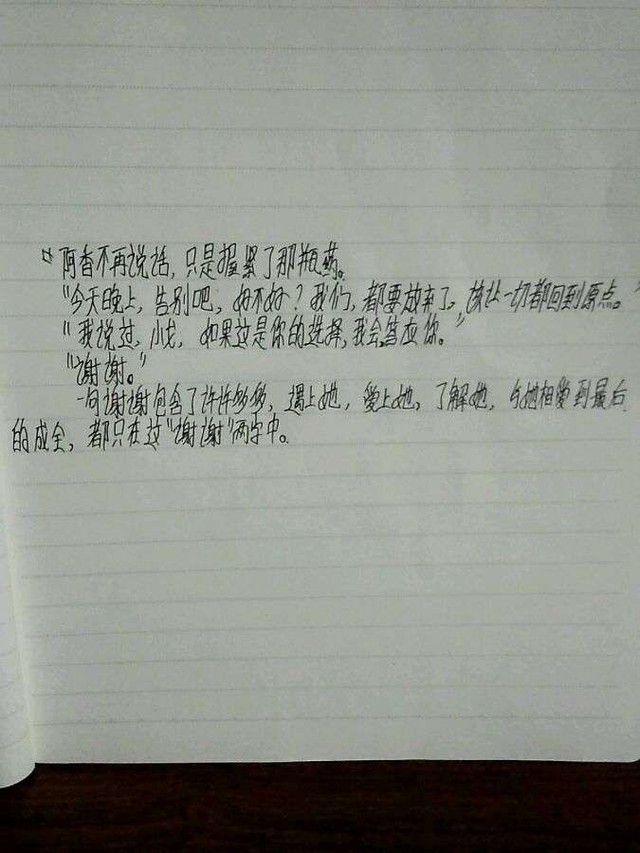 阿香不再说话，只是握紧了那瓶药。
“今天晚上，告别吧，好不好？我们，都要放弃了，该让一切都回到原点。”
“我说过，小戈，如果这是你的选择，我会答应你。”
“谢谢。”
一句谢谢包含了许许多多，遇上她，爱上她，了解她，与她相爱到最后
的成全，都只在这“谢谢”两字中。